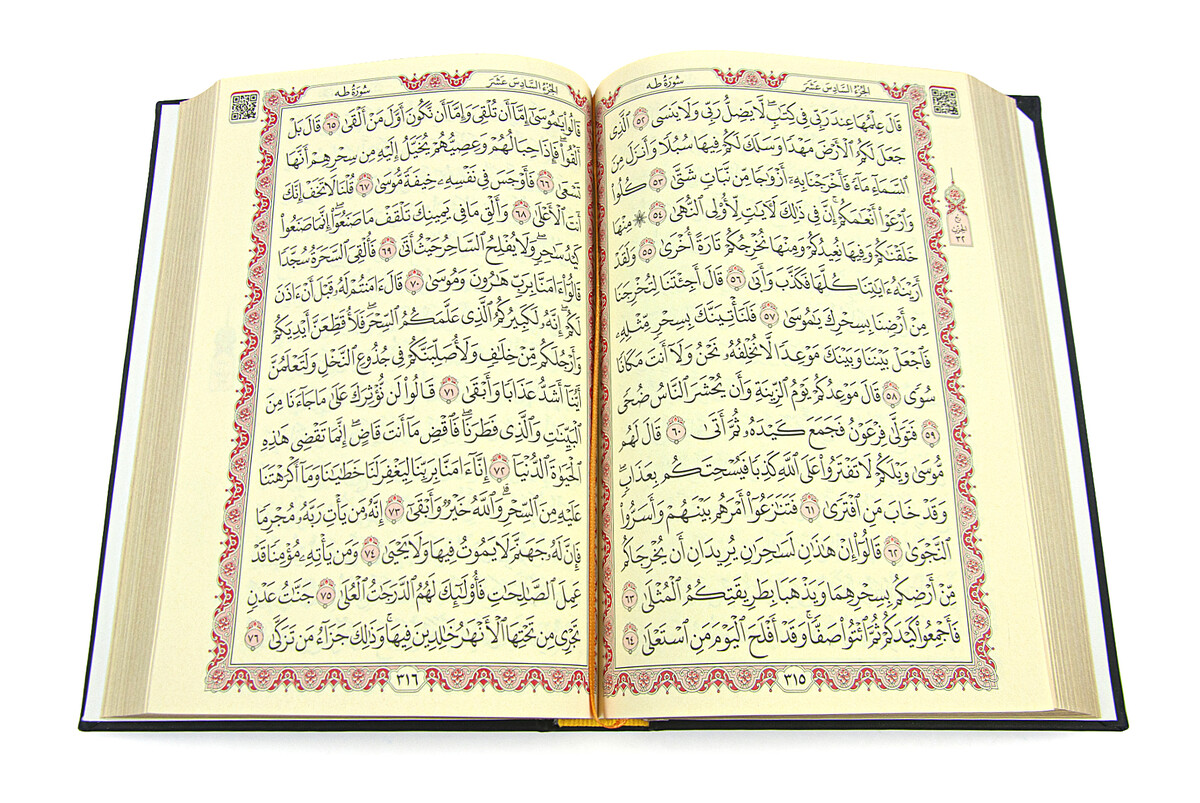 سُورَةُ طه
الجُزْءُ السَّادِسَ عَشَرَ
قَالَ عِلْمُهَا عِندَ رَبِّى فِى كِتَٰبٍۖ لَّا يَضِلُّ رَبِّى وَلَا يَنسَى ٥٢ ٱلَّذِى
جَعَلَ لَكُمُ ٱلْأَرْضَ مَهْدًا وَسَلَكَ لَكُمْ فِيهَا سُبُلًا وَأَنزَلَ مِنَ
ٱلسَّمَآءِ مَآءً فَأَخْرَجْنَا بِهِۦٓ أَزْوَٰجًا مِّن نَّبَاتٍ شَتَّىٰ ٥٣ كُلُوا۟
وَٱرْعَوْا۟ أَنْعَٰمَكُمْۗ إِنَّ فِى ذَٰلِكَ لَءَايَٰتٍ لِّأُو۟لِى ٱلنُّهَىٰ ٥٤ ۞ مِنْهَا
خَلَقْنَٰكُمْ وَفِيهَا نُعِيدُكُمْ وَمِنْهَا نُخْرِجُكُمْ تَارَةً أُخْرَىٰ ٥٥ وَلَقَدْ
أَرَيْنَٰهُ ءَايَٰتِنَا كُلَّهَا فَكَذَّبَ وَأَبَىٰ ٥٦ قَالَ أَجِئْتَنَا لِتُخْرِجَنَا
مِنْ أَرْضِنَا بِسِحْرِكَ يَٰمُوسَىٰ ٥٧ فَلَنَأْتِيَنَّكَ بِسِحْرٍ مِّثْلِهِۦ
فَٱجْعَلْ بَيْنَنَا وَبَيْنَكَ مَوْعِدًا لَّا نُخْلِفُهُۥ نَحْنُ وَلَآ أَنتَ مَكَانًا
سُوًى ٥٨ قَالَ مَوْعِدُكُمْ يَوْمُ ٱلزِّينَةِ وَأَن يُحْشَرَ ٱلنَّاسُ ضُحًى
٥٩ فَتَوَلَّىٰ فِرْعَوْنُ فَجَمَعَ كَيْدَهُۥ ثُمَّ أَتَىٰ ٦٠ قَالَ لَهُم
مُّوسَىٰ وَيْلَكُمْ لَا تَفْتَرُوا۟ عَلَى ٱللَّهِ كَذِبًا فَيُسْحِتَكُم بِعَذَابٍۖ
وَقَدْ خَابَ مَنِ ٱفْتَرَىٰ ٦١ فَتَنَٰزَعُوٓا۟ أَمْرَهُم بَيْنَهُمْ وَأَسَرُّوا۟
ٱلنَّجْوَىٰ ٦٢ قَالُوٓا۟ إِنْ هَٰذَٰنِ لَسَٰحِرَٰنِ يُرِيدَانِ أَن يُخْرِجَاكُم
مِّنْ أَرْضِكُم بِسِحْرِهِمَا وَيَذْهَبَا بِطَرِيقَتِكُمُ ٱلْمُثْلَىٰ ٦٣
فَأَجْمِعُوا۟ كَيْدَكُمْ ثُمَّ ٱئْتُوا۟ صَفًّاۚ وَقَدْ أَفْلَحَ ٱلْيَوْمَ مَنِ ٱسْتَعْلَىٰ ٦٤
٣١٥
سُورَةُ طه
الجُزْءُ السَّادِسَ عَشَرَ
قَالُوا۟ يَٰمُوسَىٰٓ إِمَّآ أَن تُلْقِىَ وَإِمَّآ أَن نَّكُونَ أَوَّلَ مَنْ أَلْقَىٰ ٦٥ قَالَ بَلْ
أَلْقُوا۟ۖ فَإِذَا حِبَالُهُمْ وَعِصِيُّهُمْ يُخَيَّلُ إِلَيْهِ مِن سِحْرِهِمْ أَنَّهَا
تَسْعَىٰ ٦٦ فَأَوْجَسَ فِى نَفْسِهِۦ خِيفَةً مُّوسَىٰ ٦٧ قُلْنَا لَا تَخَفْ إِنَّكَ
أَنتَ ٱلْأَعْلَىٰ ٦٨ وَأَلْقِ مَا فِى يَمِينِكَ تَلْقَفْ مَا صَنَعُوٓا۟ۖ إِنَّمَا صَنَعُوا۟
كَيْدُ سَٰحِرٍۖ وَلَا يُفْلِحُ ٱلسَّاحِرُ حَيْثُ أَتَىٰ ٦٩ فَأُلْقِىَ ٱلسَّحَرَةُ سُجَّدًا
قَالُوٓا۟ ءَامَنَّا بِرَبِّ هَٰرُونَ وَمُوسَىٰ ٧٠ قَالَ ءَامَنتُمْ لَهُۥ قَبْلَ أَنْ ءَاذَنَ
لَكُمْۖ إِنَّهُۥ لَكَبِيرُكُمُ ٱلَّذِى عَلَّمَكُمُ ٱلسِّحْرَۖ فَلَأُقَطِّعَنَّ أَيْدِيَكُمْ
وَأَرْجُلَكُم مِّنْ خِلَٰفٍ وَلَأُصَلِّبَنَّكُمْ فِى جُذُوعِ ٱلنَّخْلِ وَلَتَعْلَمُنَّ
أَيُّنَآ أَشَدُّ عَذَابًا وَأَبْقَىٰ ٧١ قَالُوا۟ لَن نُّؤْثِرَكَ عَلَىٰ مَا جَآءَنَا مِنَ
ٱلْبَيِّنَٰتِ وَٱلَّذِى فَطَرَنَاۖ فَٱقْضِ مَآ أَنتَ قَاضٍۖ إِنَّمَا تَقْضِى هَٰذِهِ
ٱلْحَيَوٰةَ ٱلدُّنْيَآ ٧٢ إِنَّآ ءَامَنَّا بِرَبِّنَا لِيَغْفِرَ لَنَا خَطَٰيَٰنَا وَمَآ أَكْرَهْتَنَا
عَلَيْهِ مِنَ ٱلسِّحْرِۗ وَٱللَّهُ خَيْرٌ وَأَبْقَىٰٓ ٧٣ إِنَّهُۥ مَن يَأْتِ رَبَّهُۥ مُجْرِمًا
فَإِنَّ لَهُۥ جَهَنَّمَ لَا يَمُوتُ فِيهَا وَلَا يَحْيَىٰ ٧٤ وَمَن يَأْتِهِۦ مُؤْمِنًا قَدْ
عَمِلَ ٱلصَّٰلِحَٰتِ فَأُو۟لَٰٓئِكَ لَهُمُ ٱلدَّرَجَٰتُ ٱلْعُلَىٰ ٧٥ جَنَّٰتُ عَدْنٍ
تَجْرِى مِن تَحْتِهَا ٱلْأَنْهَٰرُ خَٰلِدِينَ فِيهَاۚ وَذَٰلِكَ جَزَآءُ مَن تَزَكَّىٰ ٧٦
٣١٦